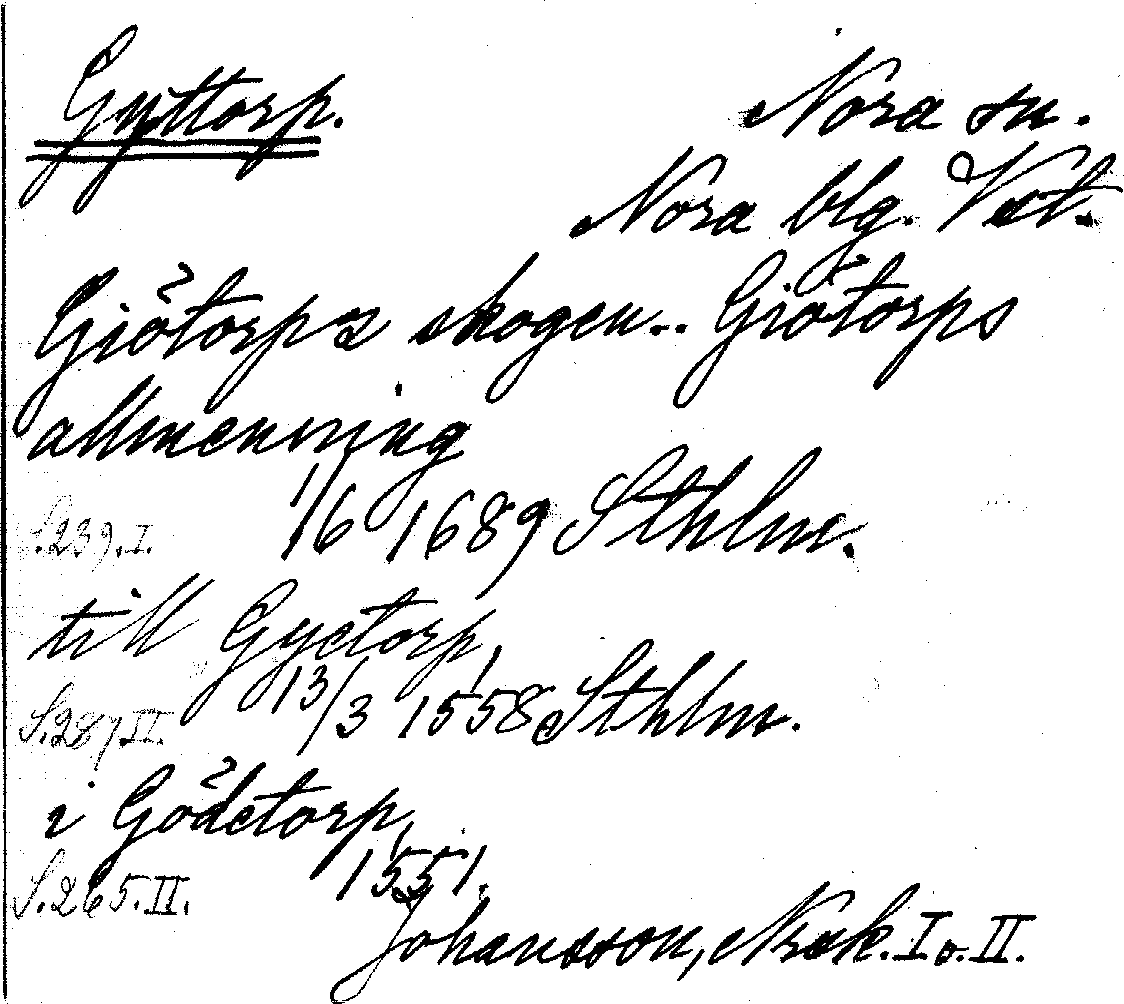 Gyttorp. Nora sn.
Nora blg. Vstl.
Giötorpz skogen.. Giötorps
allmenning
S.239.I. 1/6 1689 Sthlm.
till Gyetorp,
S.287 II. 13/3 1558 Sthlm.
i Gödetorp,
S.265.II. 1551.
Johansson, Nrsk. I o. II.